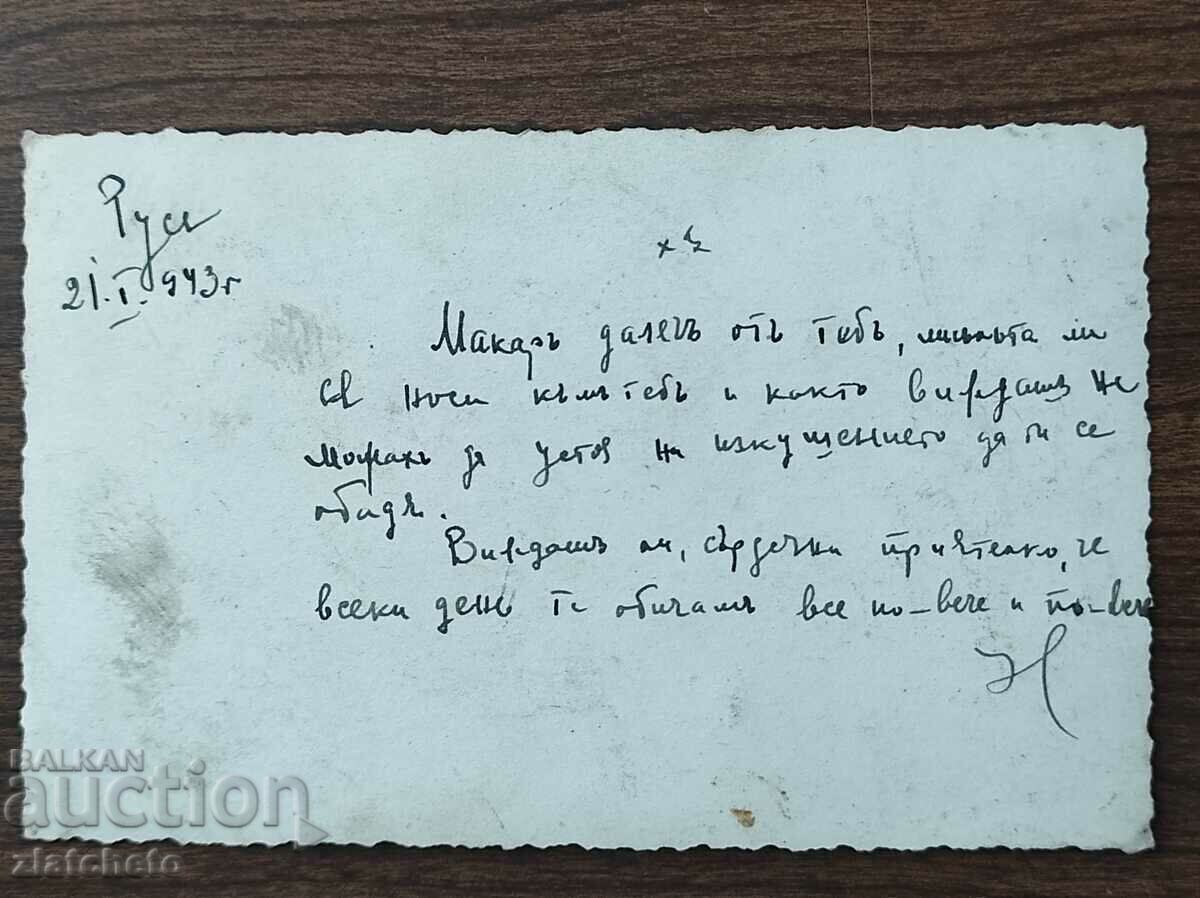 Русе
21.I.943г
Макаръ далечъ отъ тебъ, мисъльта ми
се носи към тебъ и както виждашъ не
можахъ да устоя на изкущението да ти се
обадя.
Виждашъ ли, сърдечна приятелко, че
всеки день те обичамъ все по-вече и по-вече
Н
BALKAN
auction
zlatcheto